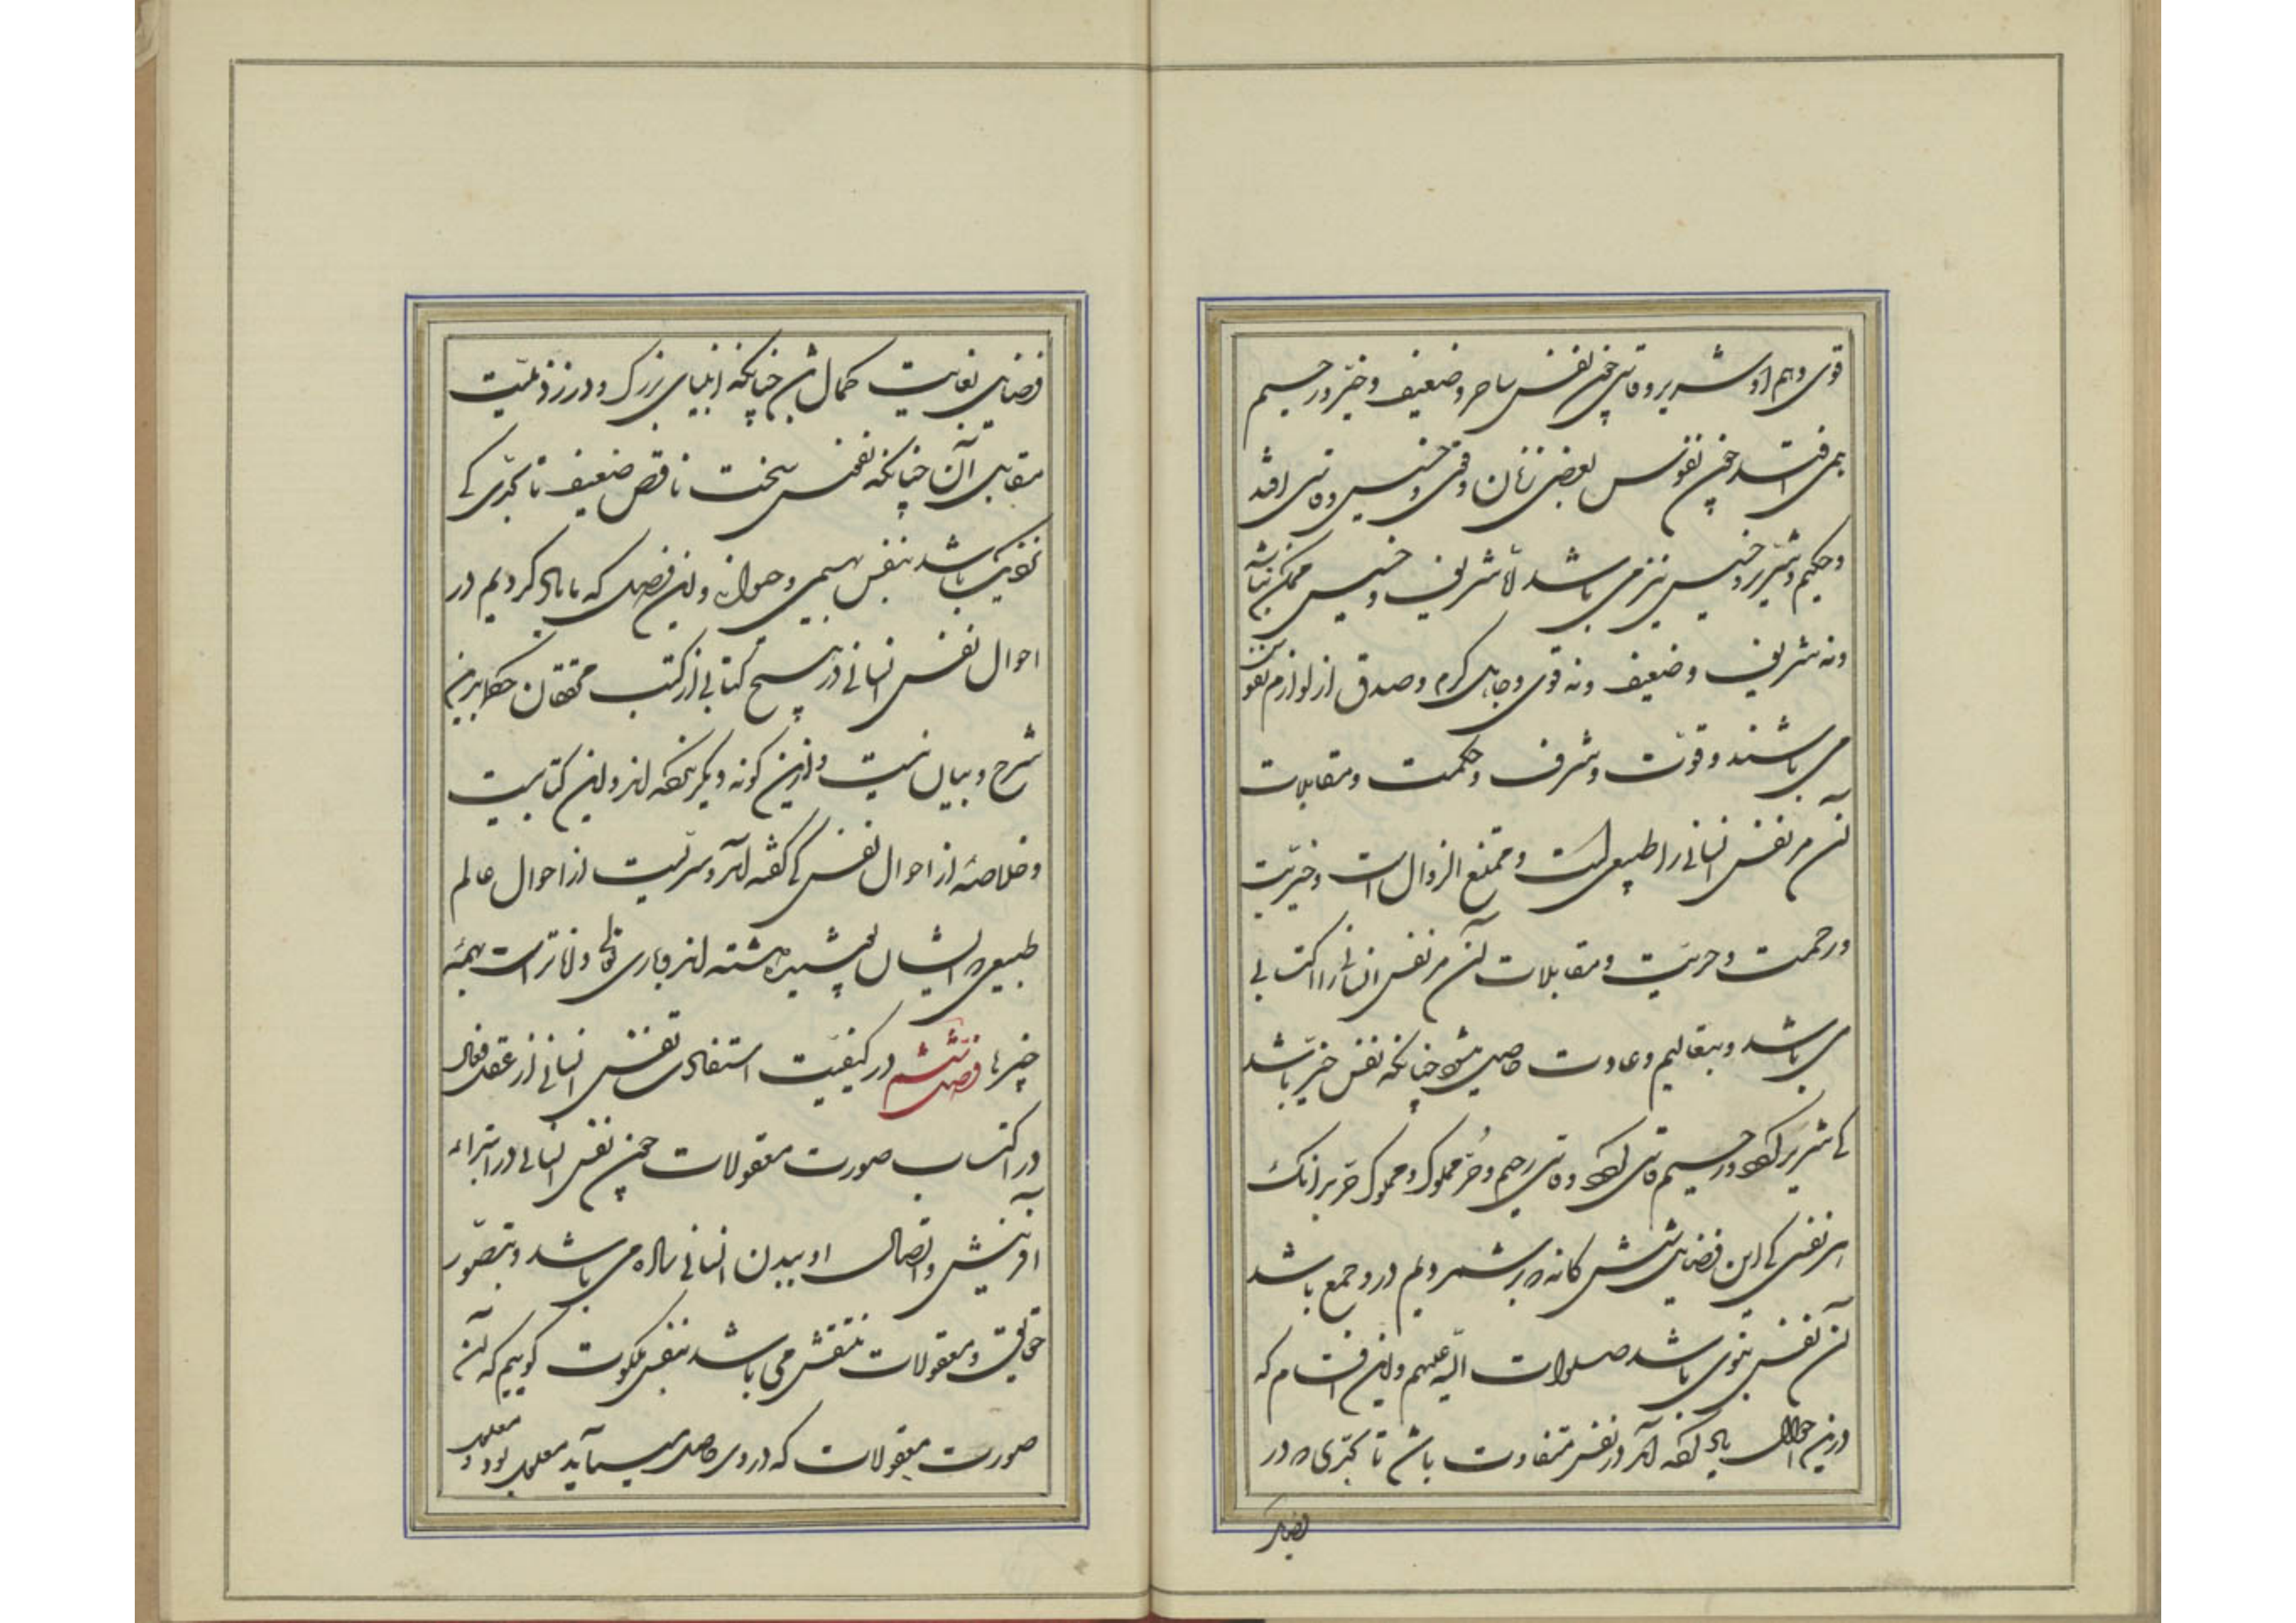 قوی و هم او شریر و قاسی چون نفس ساحر و ضعیف و خیّر و رحیم
همی افتد چون نفوس بعضی زنان و قوی و خسیس و قاسی افتد
و حکیم و شریر و خسیس نیز می باشد لاّ شریف و خسیس ممکن نباشد
و نه شریف و ضعیف و نه قوی و جاهل کرم و صدق از لوازم نفوس
می باشند و قوّت و شرف و حکمت و مقابلات
آن مر نفس انسانی را طبیعی است و ممتنع الزوال است و خیریّت
و رحمت و حریّت و مقابلات آن مر نفس انسانی را اکتسابی
می باشد و بتعالیم و عادت حاصل میشود چنانکه نفس خیّر باشد
کی شریر کردد و رحیم قاسی کردد و قاسی رحیم و حُرّ مملوک و مملوک حرّ بدانک
هر نفسی کی این فضایل شش کانه که برشمردیم درو جمع باشد
آن نفس نبوی باشد صلوات الله علیهم و این اقسام که
درین احوال یاد کفته آمد در نفس متفاوت باشد تا بحدّی که در
فضایل
فضایل بغایت کمال باشد چنانکه انبیای بزرک و در رذیلیّت
مقابل آن چنانکه نفس سخت ناقص ضعیف تا بحدّی کی
نزدیک باشد بنفس بهیمی و حیوانی و این فصل که ما یاد کردیم در
احوال نفس انسانی در هیچ کتابی از کتب محققان حکما برین
شرح و بیان نیست و ازین کونه دیکر نکفته اند و این کتابیست
و خلاصهٔ از احوال نفس کی کفته آمد و سرّیست از احوال عالم
طبیعی که ایشان پوشیده داشته اند و باری تعالی داناتر است بهمهٔ
چیزها فصل ششم در کیفیّت استفادت نفس انسانی از عقل فعال
در اکتساب صورت معقولات چون نفس انسانی در ابتداء
آفرینش و اتصال او ببدن انسانی ساده می باشد و بتصوّر
حقایق و معقولات منتقش می باشد بنفس ملکوت کوییم که آن
صورت معقولات که در وی حاصل میآید معلول بود و معلول